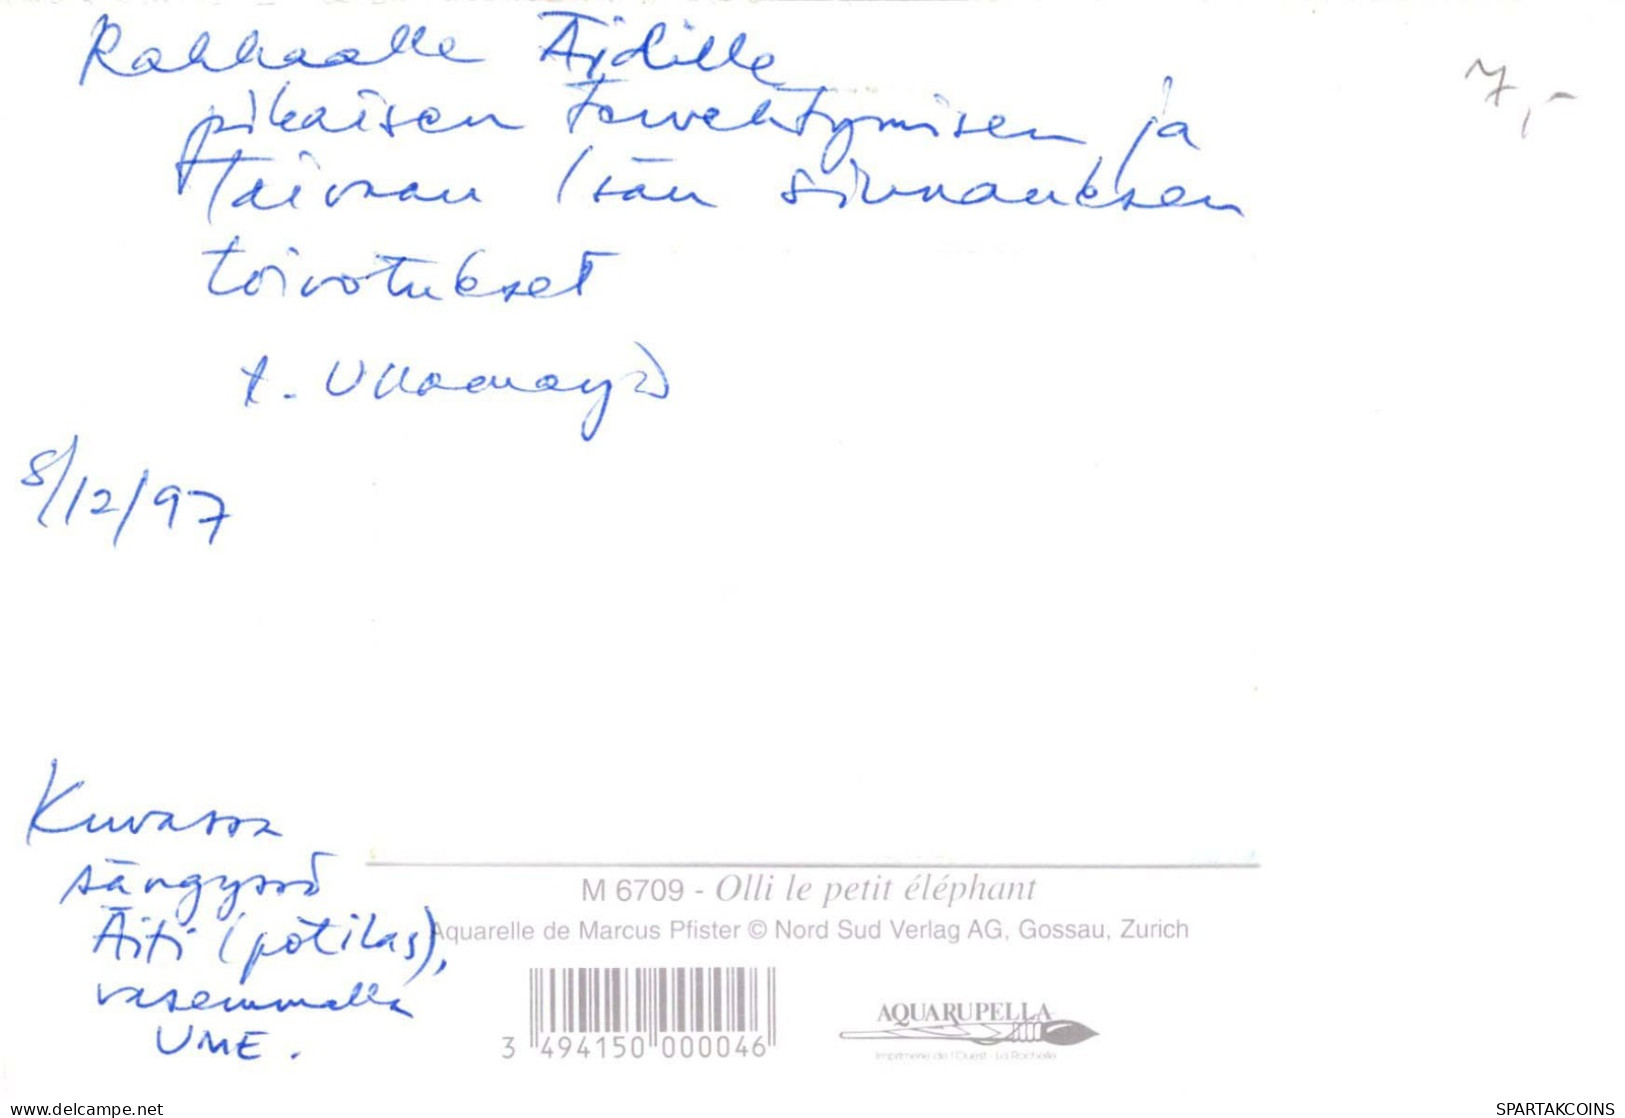 Rakkaalle Äidille
7,-
pikaisen tervehtymisen ja
Taivaan Isän siunauksen
toivotukset
t.
8/12/97
Kuvassa
sängyssä
Äiti (potilas),
vasemmalla
UME.
M 6709 - Olli le petit éléphant
Aquarelle de Marcus Pfister © Nord Sud Verlag AG, Gossau, Zurich
3 494150 000046
AQUARUPELLA
Imprimerie de l'Ouest - La Rochelle
www.delcampe.net egert2
SPARTAKCOINS